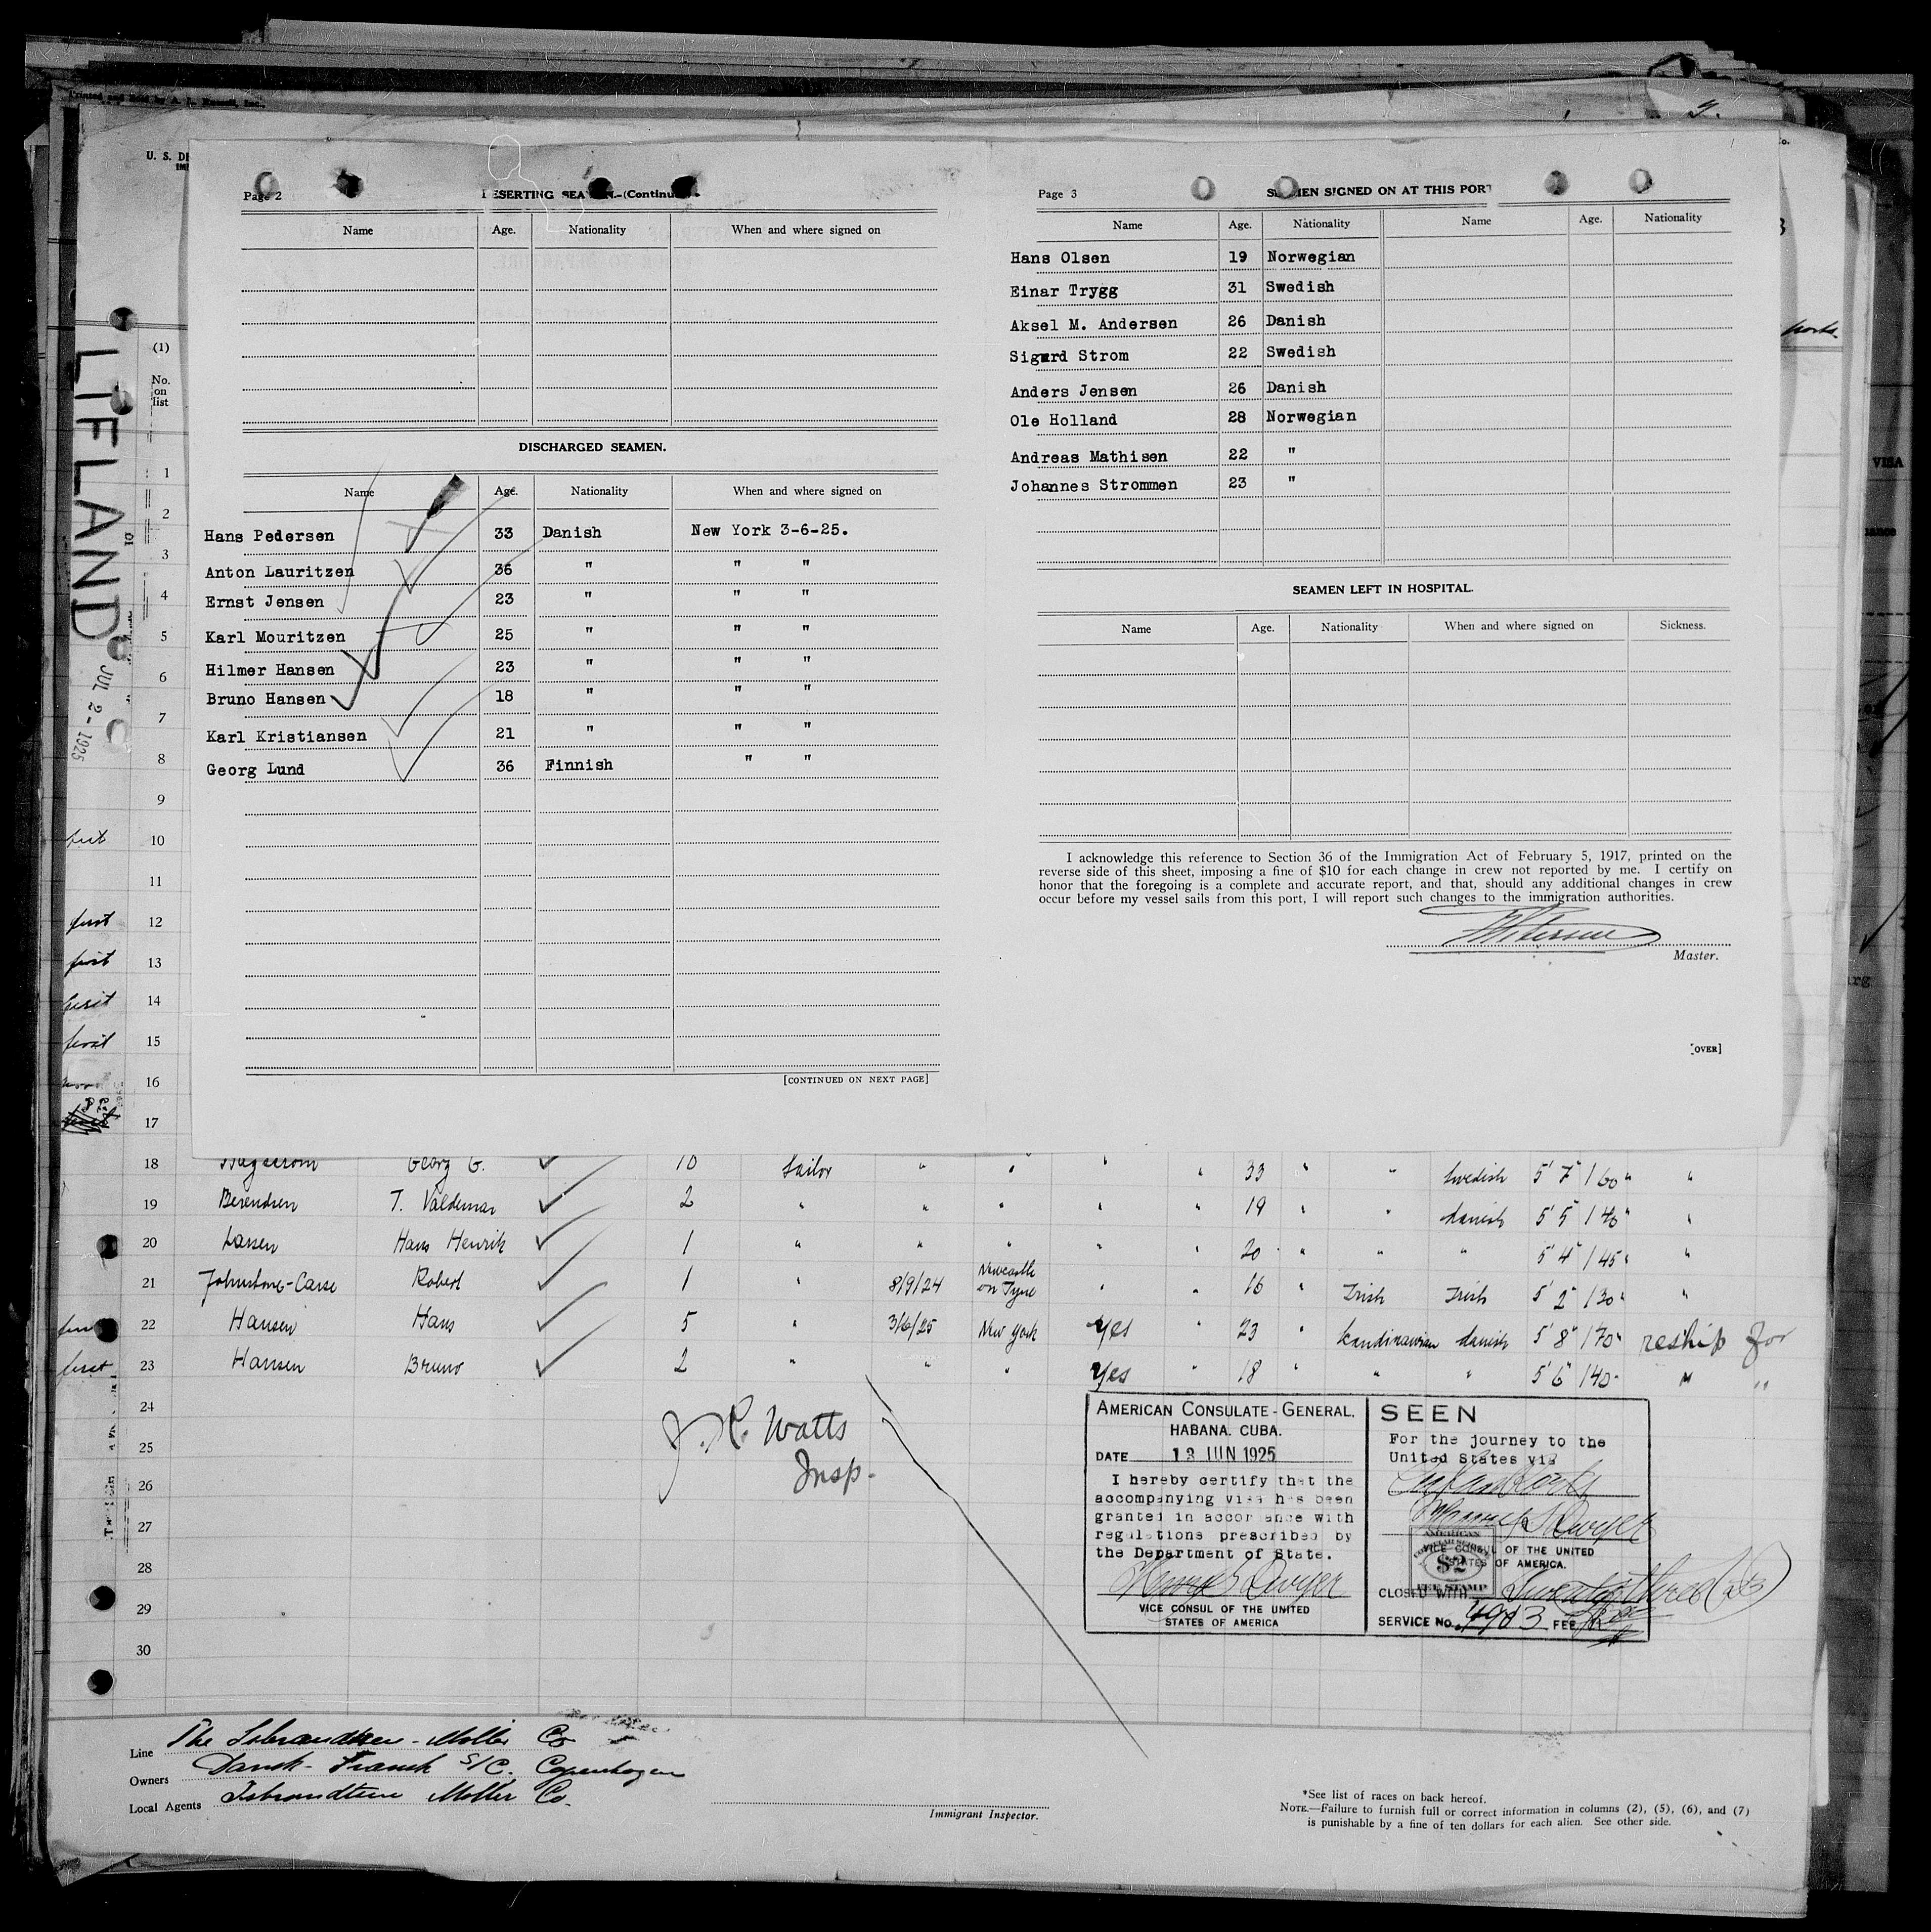 Printed and Sold by A. L. Russell, Inc.
U. S. DE
Page 2
DESERTING SEAMEN.-(Continued)
Name Age. Nationality When and where signed on
DISCHARGED SEAMEN.
Name Age. Nationality When and where signed on
Hans Pedersen 33 Danish New York 3-6-25.
Anton Lauritzen 36 " " "
Ernst Jensen 23 " " "
Karl Mouritzen 25 " " "
Hilmer Hansen 23 " " "
Bruno Hansen 18 " " "
Karl Kristiansen 21 " " "
Georg Lund 36 Finnish " "
[CONTINUED ON NEXT PAGE]
Page 3
SEAMEN SIGNED ON AT THIS PORT
Name Age. Nationality Name Age. Nationality
Hans Olsen 19 Norwegian
Einar Trygg 31 Swedish
Aksel M. Andersen 26 Danish
Sigurd Strom 22 Swedish
Anders Jensen 26 Danish
Ole Holland 28 Norwegian
Andreas Mathisen 22 "
Johannes Strommen 23 "
SEAMEN LEFT IN HOSPITAL.
Name Age. Nationality When and where signed on Sickness.
I acknowledge this reference to Section 36 of the Immigration Act of February 5, 1917, printed on the
reverse side of this sheet, imposing a fine of $10 for each change in crew not reported by me. I certify on
honor that the foregoing is a complete and accurate report, and that, should any additional changes in crew
occur before my vessel sails from this port, I will report such changes to the immigration authorities.
Master.
[OVER]
LIFLAND
JUL 2 - 1925
(1)
No.
on
list
1
2
3
4
5
6
7
8
9
10
11
first 12
first 13
first 14
first 15
16
17
VISA
18 Georg G. 10 Sailor " " " " 33 " " Swedish 5' 7" 160 " "
19 Berendsen T. Valdemar 2 " " " " " 19 " " Danish 5' 5" 140 " "
20 Larsen Hans Henrik 1 " " " " " 20 " " " 5' 4" 145 " "
21 Johnstone-Carse Robert 1 " 8/9/24 Newcastle on Tyne " " 16 " Irish Irish 5' 2" 130 " "
22 Hansen Hans 5 " 3/6/25 New York Yes " 23 " Scandinavian Danish 5' 8" 170 " reship for
first 23 Hansen Bruno 2 " " " Yes " 18 " " " 5' 6" 140 " " "
24
25
26
27
28
29
30
J. R. Watts
Insp.
AMERICAN CONSULATE-GENERAL.
HABANA. CUBA.
DATE 13 JUN 1925
I hereby certify that the
accompanying visa has been
granted in accordance with
regulations prescribed by
the Department of State.
VICE CONSUL OF THE UNITED
STATES OF AMERICA
SEEN
For the journey to the
United States via
AMERICAN
$2
FEE STAMP
VICE CONSUL OF THE UNITED
STATES OF AMERICA.
CLOSED WITH Twenty three (23)
SERVICE No. 4913 FEE
Line The Isbrandtsen-Moller Co
Owners Dansk-Fransk S/C. Copenhagen
Local Agents Isbrandtsen Moller Co.
Immigrant Inspector.
*See list of races on back hereof.
NOTE.—Failure to furnish full or correct information in columns (2), (5), (6), and (7)
is punishable by a fine of ten dollars for each alien. See other side.